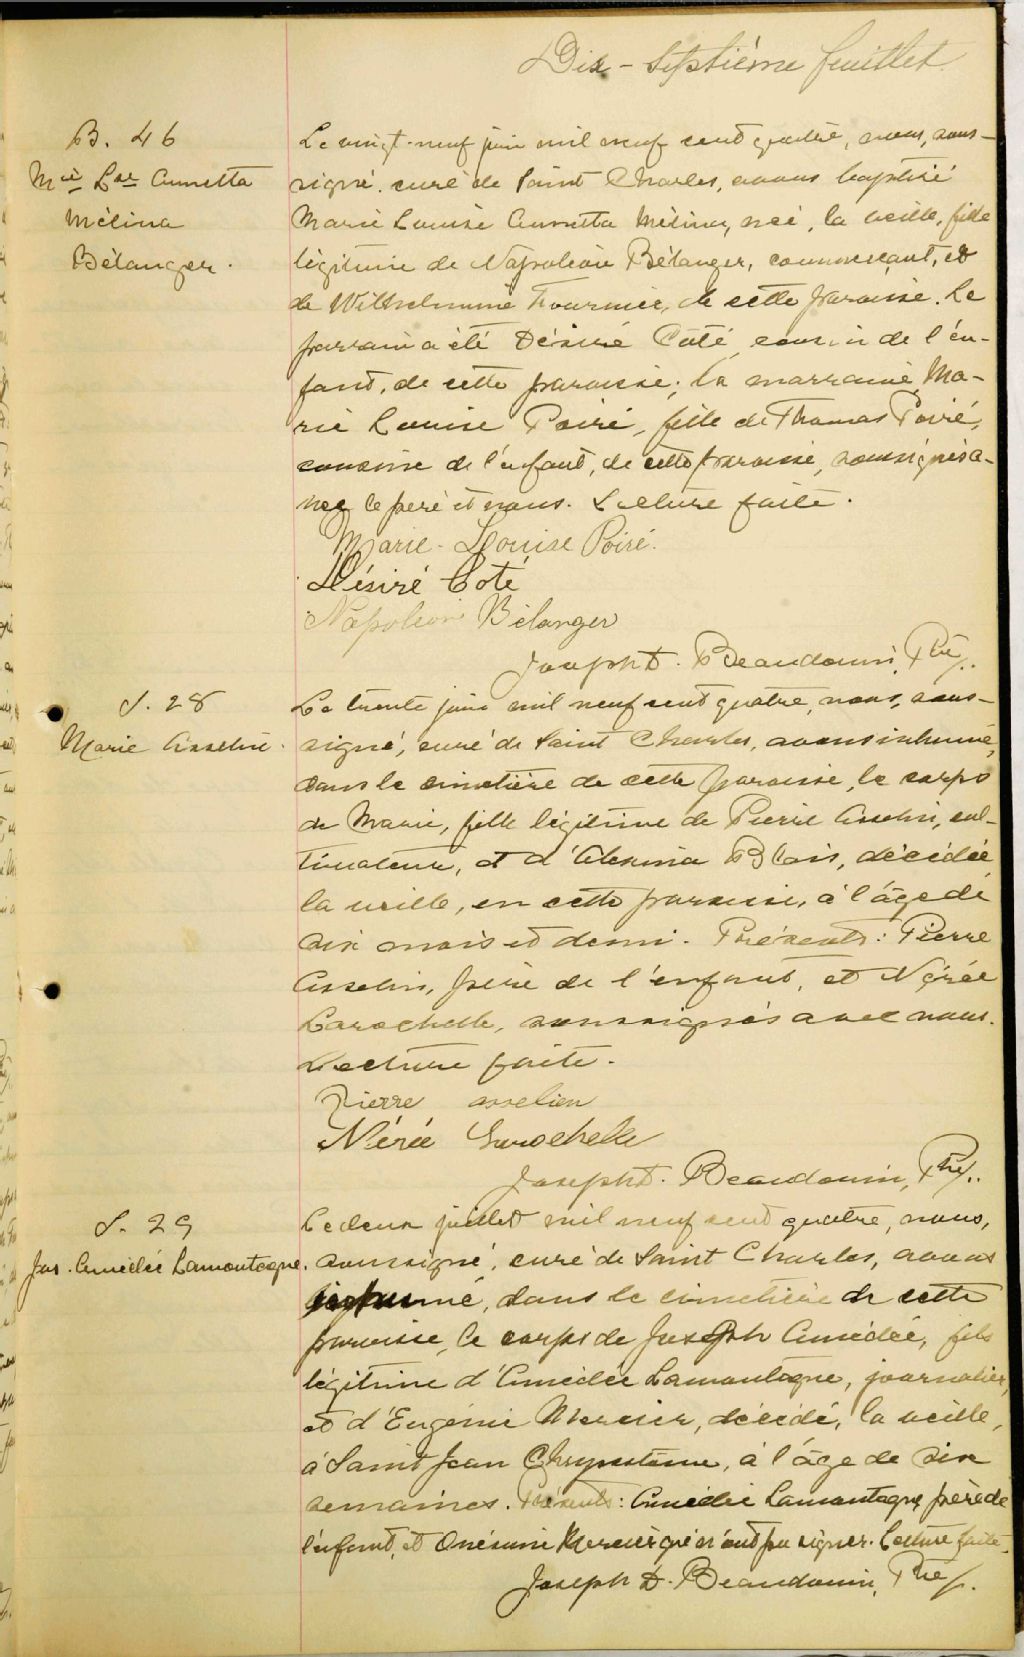 Dix-septième feuillet
B. 46
Mie Lse Annetta
Mélina
Bélanger.
Le vingt-neuf juin mil neuf cent quatre, nous, sous-
signé, curé de Saint Charles, avons baptisé
Marie Louise Annetta Mélina, née, la veille, fille
légitime de Napoléon Bélanger, commerçant, et
de Wilhelmine Fournier, de cette paroisse. Le
parrain a été Désiré Côté, cousin de l'en-
fant, de cette paroisse; la marraine, Ma-
rie Louise Poiré, fille de Thomas Poiré,
cousine de l'enfant, de cette paroisse, soussignés a-
vec le père et nous. Lecture faite.
Marie-Louise Poiré.
Désiré Coté
Napoléon Bélanger
Joseph D. Beaudouin, Ptre.
S. 28
Marie Asselin.
Le trente juin mil neuf cent quatre, nous, sous-
signé, curé de Saint Charles, avons inhumé,
dans le cimetière de cette paroisse, le corps
de Marie, fille légitime de Pierre Asselin, cul-
tivateur, et d'Alexina Blais, décédée,
la veille, en cette paroisse, à l'âge de
six mois et demi. Présents: Pierre
Asselin, père de l'enfant, et Nérée
Larochelle, soussignés avec nous.
Lecture faite.
Pierre asselien
Nérée Larochelle
Joseph D. Beaudouin, Ptre.
S. 29
Jos. Amédée Lamontagne.
Le deux juillet mil neuf cent quatre, nous,
soussigné, curé de Saint Charles, avons
inhumé, dans le cimetière de cette
paroisse, le corps de Joseph Amédée, fils
légitime d'Amédée Lamontagne, journalier,
et d'Eugénie Mercier, décédé, la veille,
à Saint Jean Chrysostôme, à l'âge de six
semaines. Présents: Amédée Lamontagne, père de
l'enfant, et Onésime Mercier qui n'ont pu signer. Lecture faite.
Joseph D. Beaudouin, Ptre.